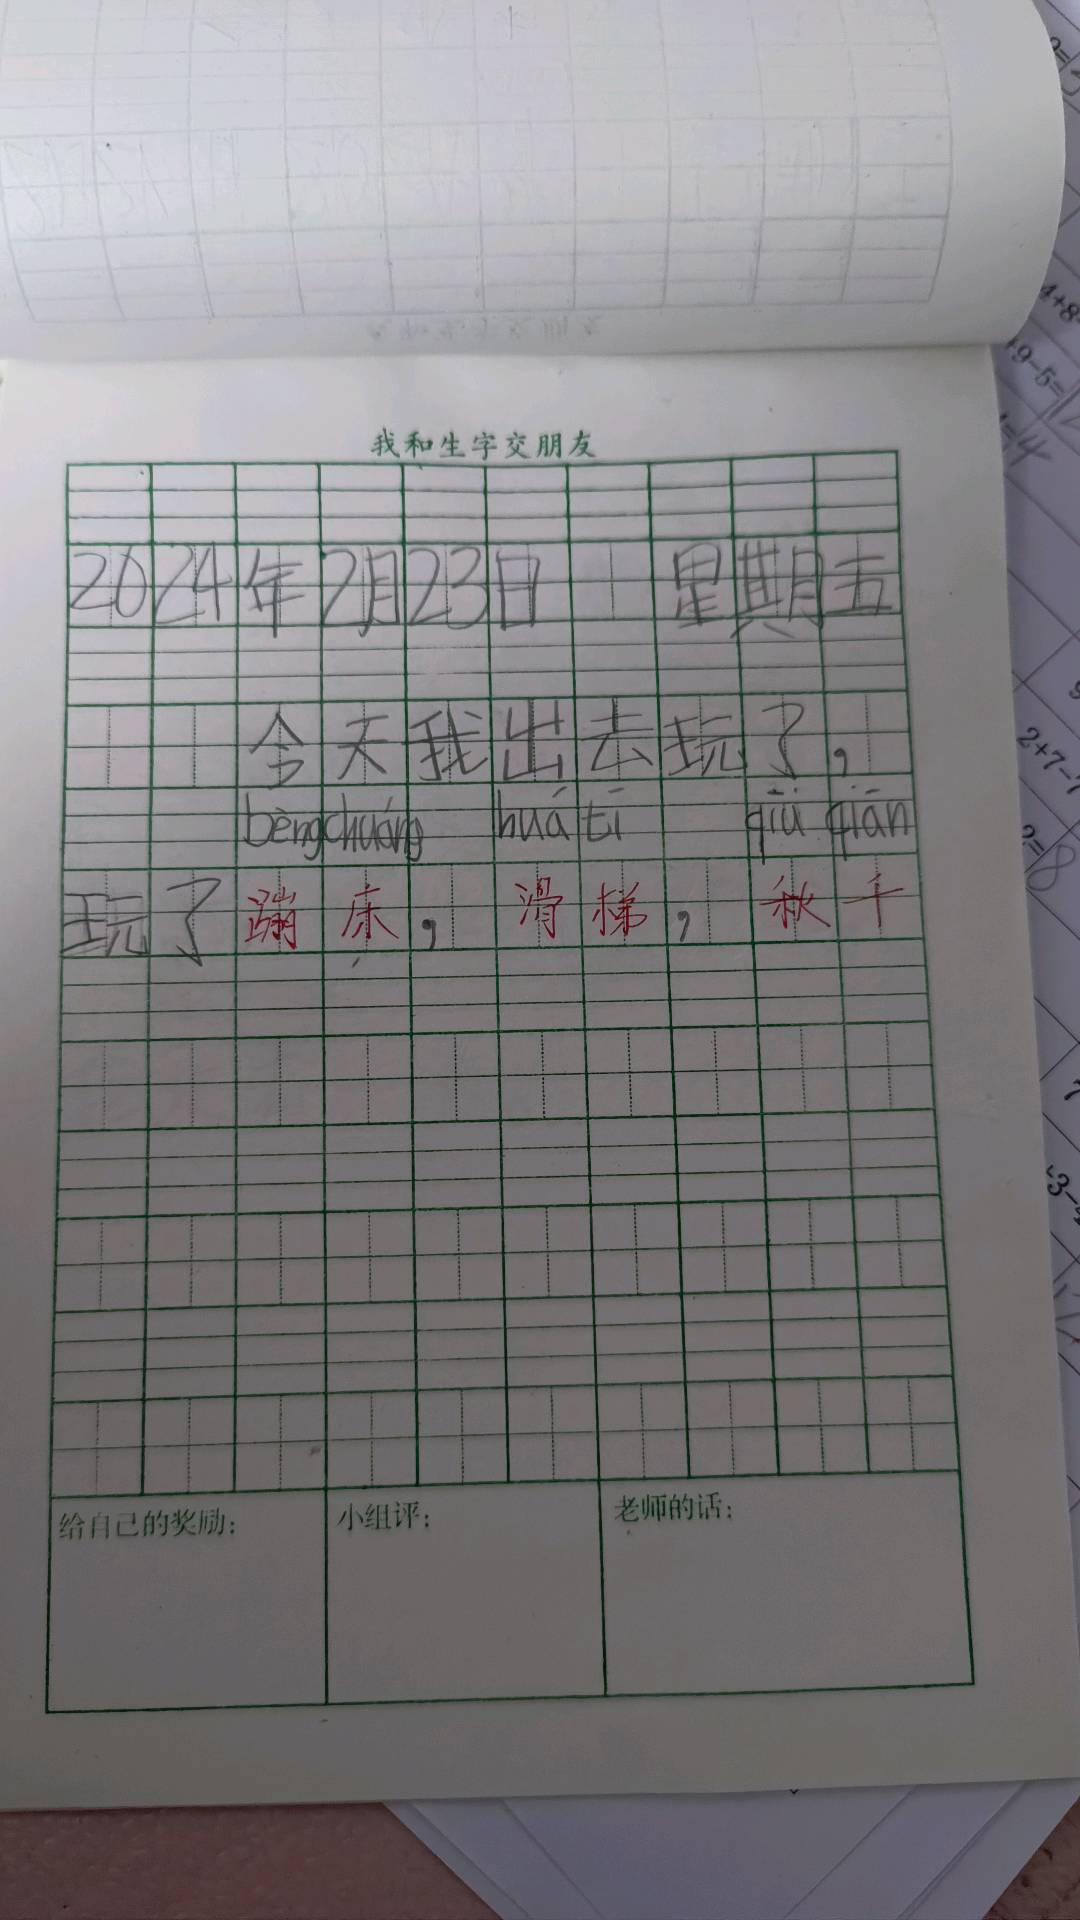 我和生字交朋友
2024年2月23日 星期五
今天我出去玩了，
bèngchuáng huá tī qiū qiān
玩了蹦床，滑梯，秋千
给自己的奖励：
小组评：
老师的话：
4+8
+9-5=
=4
2+7-
2=8
-3-